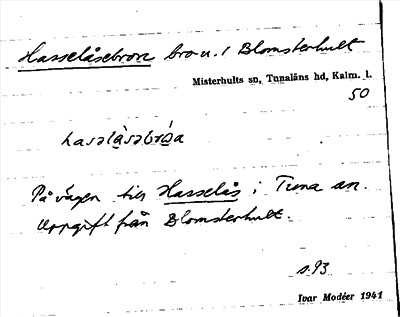 Hasselåsebron bro u. / Blomsterhult
Misterhults sn, Tunaläns hd, Kalm. l.
50
hasəlà̱səbró̱a
På vägen till Hasselås i Tuna sn.
Uppgift från Blomsterhult.
s. 93
Ivar Modéer 1941